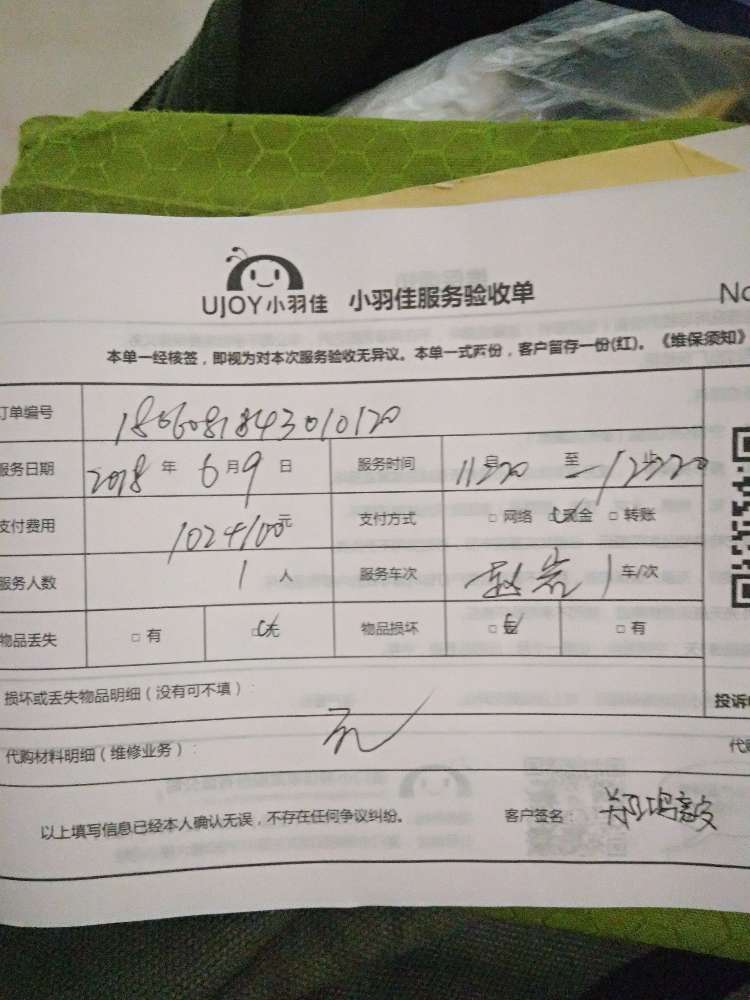 UJOY小羽佳 小羽佳服务验收单 No
本单一经核签，即视为对本次服务验收无异议。本单一式两份，客户留存一份(红)。《维保须知》
订单编号 1806081843010120
服务日期 2018 年 6 月 9 日 服务时间 11点20 至 12点20 止
支付费用 102+100元 支付方式 □ 网络 □ 现金 □ 转账
服务人数 1 人 服务车次 1 车/次
物品丢失 □ 有 □ 无 物品损坏 □ 无 □ 有
损坏或丢失物品明细（没有可不填）： 投诉
代购材料明细（维修业务）： 无 代购
以上填写信息已经本人确认无误，不存在任何争议纠纷。 客户签名：